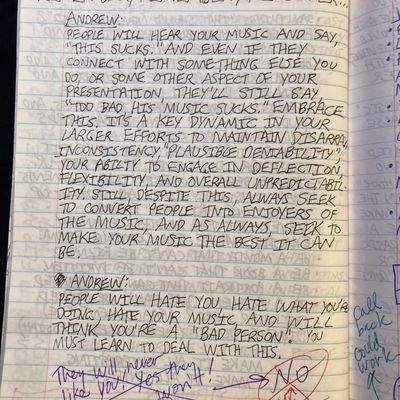 ANDREW:
PEOPLE WILL HEAR YOUR MUSIC AND SAY,
"THIS SUCKS." AND EVEN IF THEY
CONNECT WITH SOMETHING ELSE YOU
DO, OR SOME OTHER ASPECT OF YOUR
PRESENTATION, THEY'LL STILL SAY
"TOO BAD, HIS MUSIC SUCKS." EMBRACE
THIS. IT'S A KEY DYNAMIC IN YOUR
LARGER EFFORTS TO MAINTAIN DISARRAY,
INCONSISTENCY, "PLAUSIBLE DENIABILITY",
YOUR ABILITY TO ENGAGE IN DEFLECTION,
FLEXIBILITY, AND OVERALL UNPREDICTABIL-
ITY. STILL, DESPITE THIS, ALWAYS SEEK
TO CONVERT PEOPLE INTO ENJOYERS OF
THE MUSIC, AND AS ALWAYS, SEEK TO
MAKE YOUR MUSIC THE BEST IT CAN
BE.
ANDREW:
PEOPLE WILL HATE YOU, HATE WHAT YOU'RE
DOING, HATE YOUR MUSIC AND WILL
THINK YOU'RE A "BAD PERSON". YOU
MUST LEARN TO DEAL WITH THIS.
They will never
like you, yes they
won't!
NO
Call
back
could
work